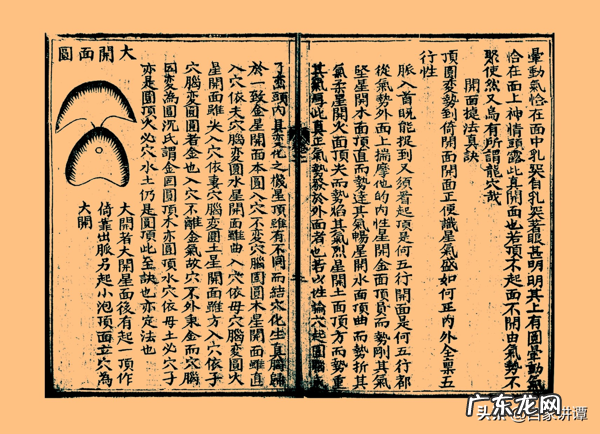 暈動氣恰在面中乳突有乳突者眼甚明明其上有圓暈動氣
恰在面上神情頭露此真開面也若頂不起面不開由氣勢不
聚使然又烏有所謂龍穴哉
開面捷法真訣
頂圓變勢到倚開面開面正便識星氣盛如何正內外全票五
行性
脈入首既能捉到又須看起頂是何五行開面是何五行都
從氣勢外面上揣摩他的內性星開金面頂員而勢剛其氣
堅星開木面頂直而勢達其氣暢星開水面頂曲而勢折其
氣柔星開火面頂尖而勢焰其氣烈星開土面頂方而勢重
其氣此真正氣勢發於外面者也若以性論穴起圓腦
了巒頭內具變化之機星頂雖有不同而結穴化生真腦歸
於一致金星開面本圓入穴不變穴腦圓木星開面雖直
入穴依夫穴腦變圓水星開面雖曲入穴依母穴腦變圓火
星開面雖尖入穴依妻穴腦變圓土星開面雖方入穴依子
穴腦變圓圓者金也入穴不離金氣故穴不外乘金而穴腦
因變為圓沈氏謂金回圓頂木亦圓頂水穴依母土必穴子
亦是圓頂火必穴水土仍是圓頂此至訣也亦定法也
大開面圖
大開者大開星面後有起一頂作
倚靠出脈另起小泡頂面立穴為
大開
头条@百家讲谭
广东龙网